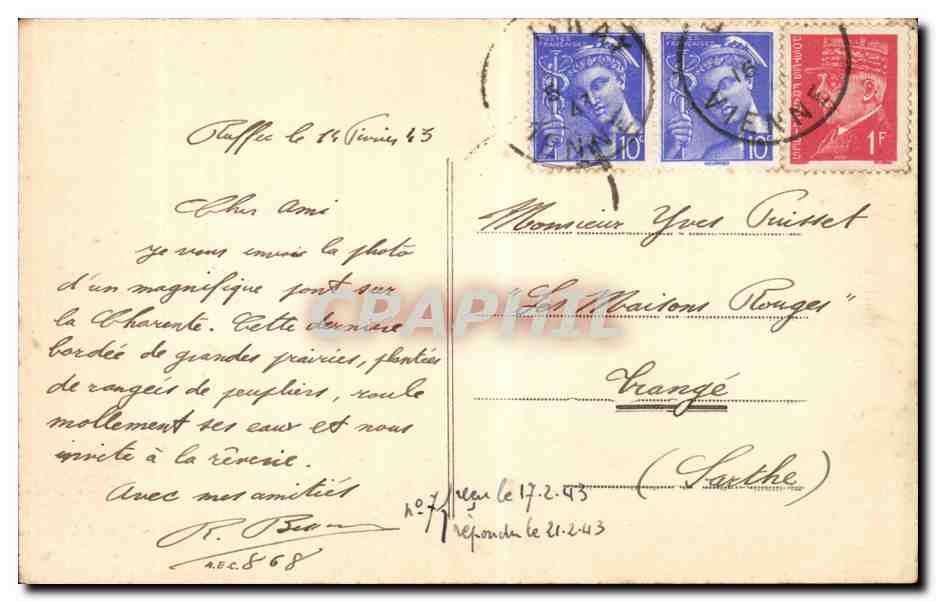 Ruffec le 14 Février 43
Cher Ami
Je vous envoie la photo
d'un magnifique pont sur
la Charente. Cette dernière
bordée de grandes prairies, plantées
de rangeis de peupliers, roule
mollement ses eaux et nous
invite à la rêverie.
Avec mes amitiés
R.
A.E.C. 868
POSTES FRANÇAISES
10c
10c
1F
VIENNE
Monsieur Yves Puisset
"Les Maisons Rouges"
Trangé
(Sarthe)
n°7 reçu le 17-2-43
répondu le 21-2-43
CRAPHIL